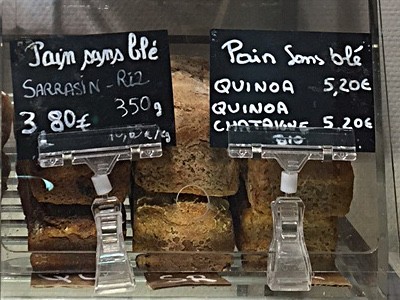 Pain sans blé
SARRASIN - RIZ
350g
3,80€
Pain Sans blé
QUINOA 5,20€
QUINOA
CHATAIGNE 5,20€
BIO